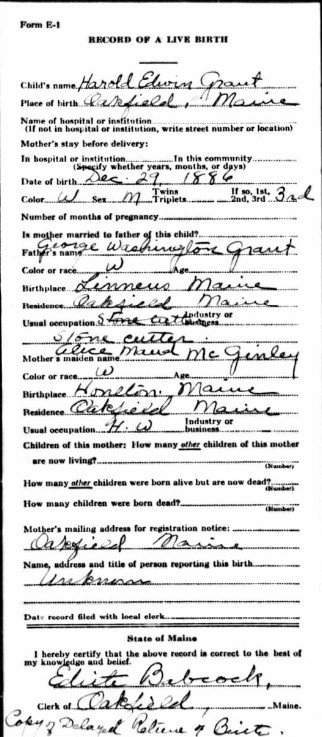 Form E-1
RECORD OF A LIVE BIRTH
Child's name Harold Edwin Grant
Place of birth Oakfield, Maine
Name of hospital or institution
(If not in hospital or institution, write street number or location)
Mother's stay before delivery:
In hospital or institution In this community
(Specify whether years, months, or days)
Date of birth Dec. 29, 1886
Color W Sex M Twins Triplets If so, 1st, 2nd, 3rd 3rd
Number of months of pregnancy
Is mother married to father of this child?
Father's name George Washington Grant
Color or race W Age
Birthplace Linneus Maine
Residence Oakfield Maine
Usual occupation Stone cutter Industry or business
Stone cutter
Mother's maiden name Alice Maud McGinley
Color or race W Age
Birthplace Houlton. Maine
Residence Oakfield Maine
Usual occupation H. W Industry or business
Children of this mother: How many other children of this mother
are now living?
(Number)
How many other children were born alive but are now dead?
(Number)
How many children were born dead?
(Number)
Mother's mailing address for registration notice:
Oakfield Maine
Name, address and title of person reporting this birth
Unknown
Date record filed with local clerk
State of Maine
I hereby certify that the above record is correct to the best of
my knowledge and belief.
Babcock,
Clerk of Oakfield, Maine.
Copy of Delayed Return of Birth.